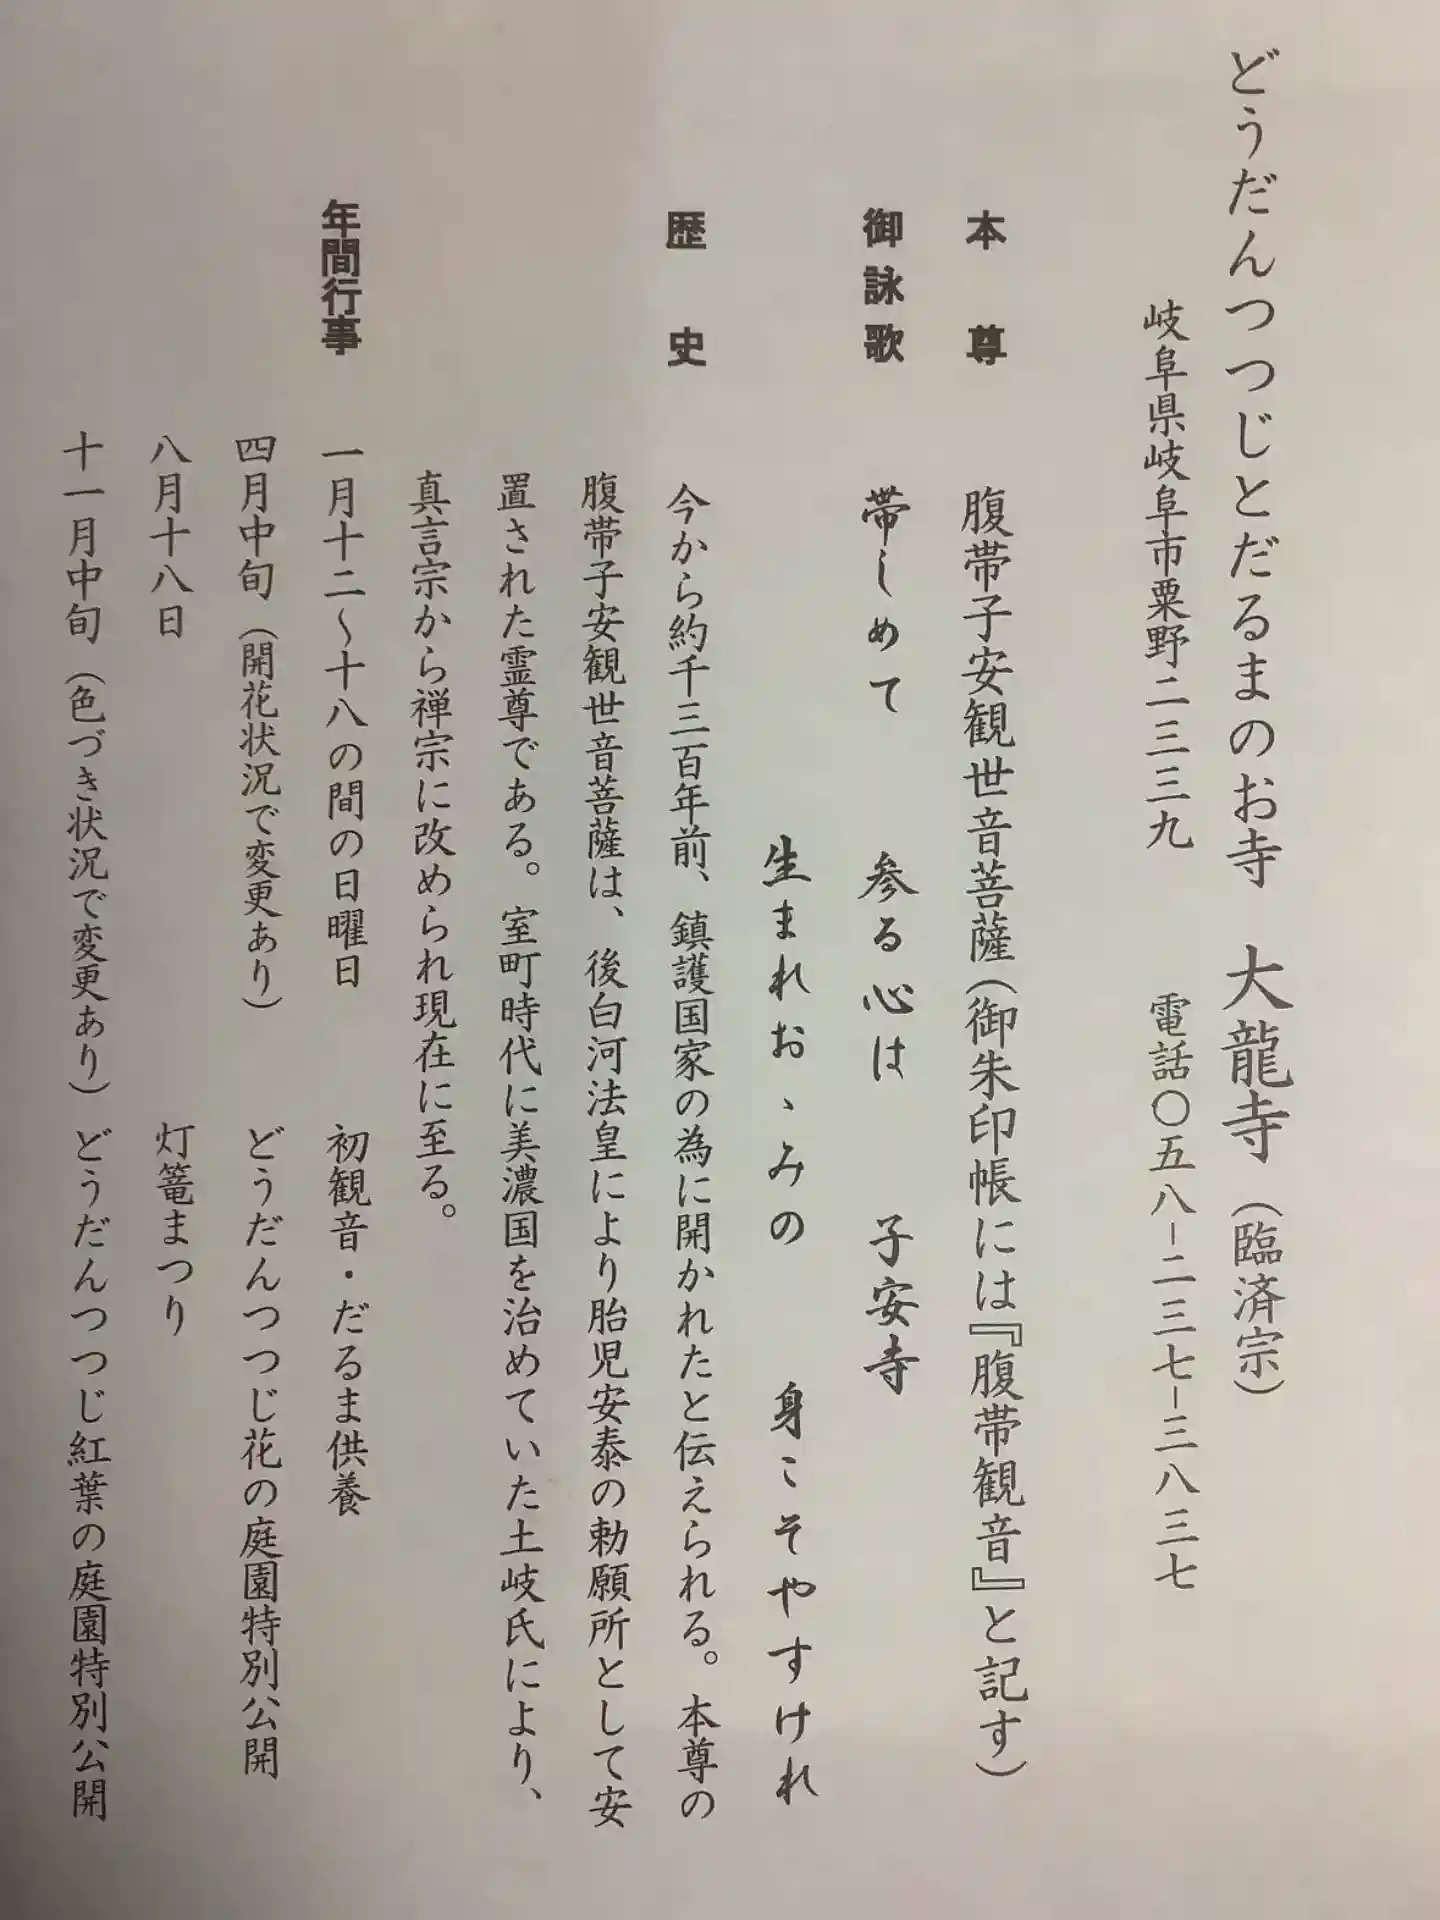 どうだんつつじとだるまのお寺　大龍寺（臨済宗）
岐阜県岐阜市粟野二三三九　電話〇五八−二三七−三八三七
本尊　腹帯子安観世音菩薩（御朱印帳には『腹帯観音』と記す）
御詠歌　帯しめて　参る心は　子安寺
生まれおゝみの　身こそやすけれ
歴史　今から約千三百年前、鎮護国家の為に開かれたと伝えられる。本尊の
腹帯子安観世音菩薩は、後白河法皇により胎児安泰の勅願所として安
置された霊尊である。室町時代に美濃国を治めていた土岐氏により、
真言宗から禅宗に改められ現在に至る。
年間行事　一月十二～十八の間の日曜日　初観音・だるま供養
四月中旬（開花状況で変更あり）　どうだんつつじ花の庭園特別公開
八月十八日　灯篭まつり
十一月中旬（色づき状況で変更あり）どうだんつつじ紅葉の庭園特別公開